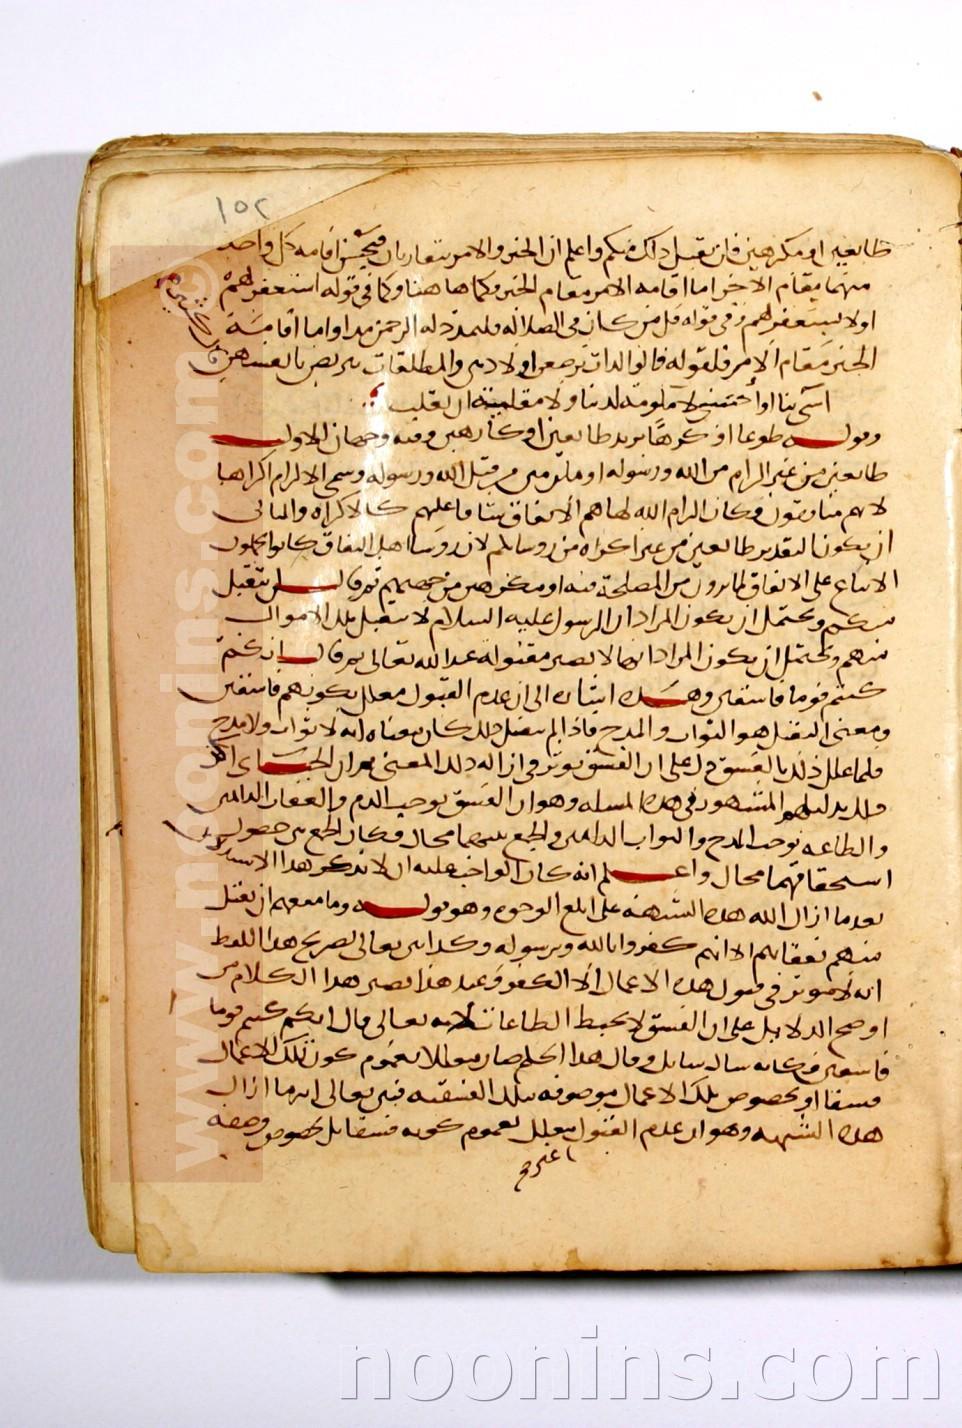 ١٥٢
طايعين او مكرهين فلن يقبل ذلك منكم واعلم ان الخبر والامر يتقاربان فيحسن اقامة كل واحد
منهما مقام الاخر اما اقامة الامر مقام الخبر فكما هاهنا وكما في قوله استغفر لهم
او لا تستغفر لهم وفي قوله قل من كان في الضلاله فليمدد له الرحمن مدا واما اقامة
الخبر مقام الامر فلقوله والوالدات يرضعن اولادهن والمطلقات يتربصن بانفسهن
اسيى بنا او أحسنى لا ملومة لدينا ولا مقلية ان تقلت
وقوله طوعا او كرها يريد طايعين او كارهين وفيه وجهان الاول
طايعين من غير الزام من الله ورسوله او ملزمين من قبل الله ورسوله وسمى الالزام اكراها
لانهم منافقون فكان الزام الله اياهم الانفاق شاقا عليهم كالاكراه والثاني
ان يكون التقدير طايعين من غير اكراه من روسايكم لان روسا اهل النفاق كانوا يحملون
الاتباع على الانفاق لما يرون من المصلحة فيه او مكرهين من جهتهم ثم قال لن يتقبل
منكم ويحتمل ان يكون المراد ان الرسول عليه السلام لا يتقبل تلك الاموال
منهم ويحتمل ان يكون المراد انها لا تصير مقبولة عند الله تعالى ثم قال انكم
كنتم قوما فاسقين وهذه اشاره الى ان عدم القبول معلل بكونهم فاسقين
ومعنى التقبل هو الثواب والمدح فاذا لم يتقبل ذلك كان معناه انه لا ثواب ولا مدح
فلما علل ذلك بالفسق دل على ان الفسق يوثر في ازاله ذلك المعنى ثم ان الجباى اكد
ذلك بدليلهم المشهور في هذه المسله وهو ان الفسق يوجب الذم والعقاب الدايمين
والطاعه توجب المدح والثواب الدايمين والجمع بينهما محال فكان الجمع بين حصول
استحقاقهما محال واعلم انه كان الواجب عليه ان لا يذكر هذا الاستدلال
بعد ما ازال الله هذه الشبهه على ابلغ الوجوه وهو قوله وما منعهم ان تقبل
منهم نفقاتهم الا انهم كفروا بالله وبرسوله وكدا بين تعالى بصريح هذا اللفظ
انه لا موثر في قبول هذه الاعمال الا الكفر وعند هذا يصير هذا الكلام من
اوضح الدلايل على ان الفسق لا يحبط الطاعات لانه تعالى قال انكم كنتم قوما
فاسقين فكانه سال سايل وقال هذا الحكم صار معللا بعموم كون تلك الاعمال
فسقا او بخصوص تلك الاعمال موصوفه بتلك الفسقيه فبين تعالى انه ما ازال
هذه الشبهه وهو ان عدم القبول معلل لعموم كونه فسقا بل بخصوص وصفه
www.noonins.com ©
noonins.com